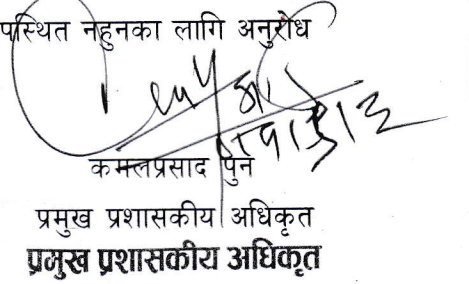 पस्थित नहुनका लागि अनुरोध
कमलप्रसाद पुन
प्रमुख प्रशासकीय अधिकृत
प्रमुख प्रशासकीय अधिकृत